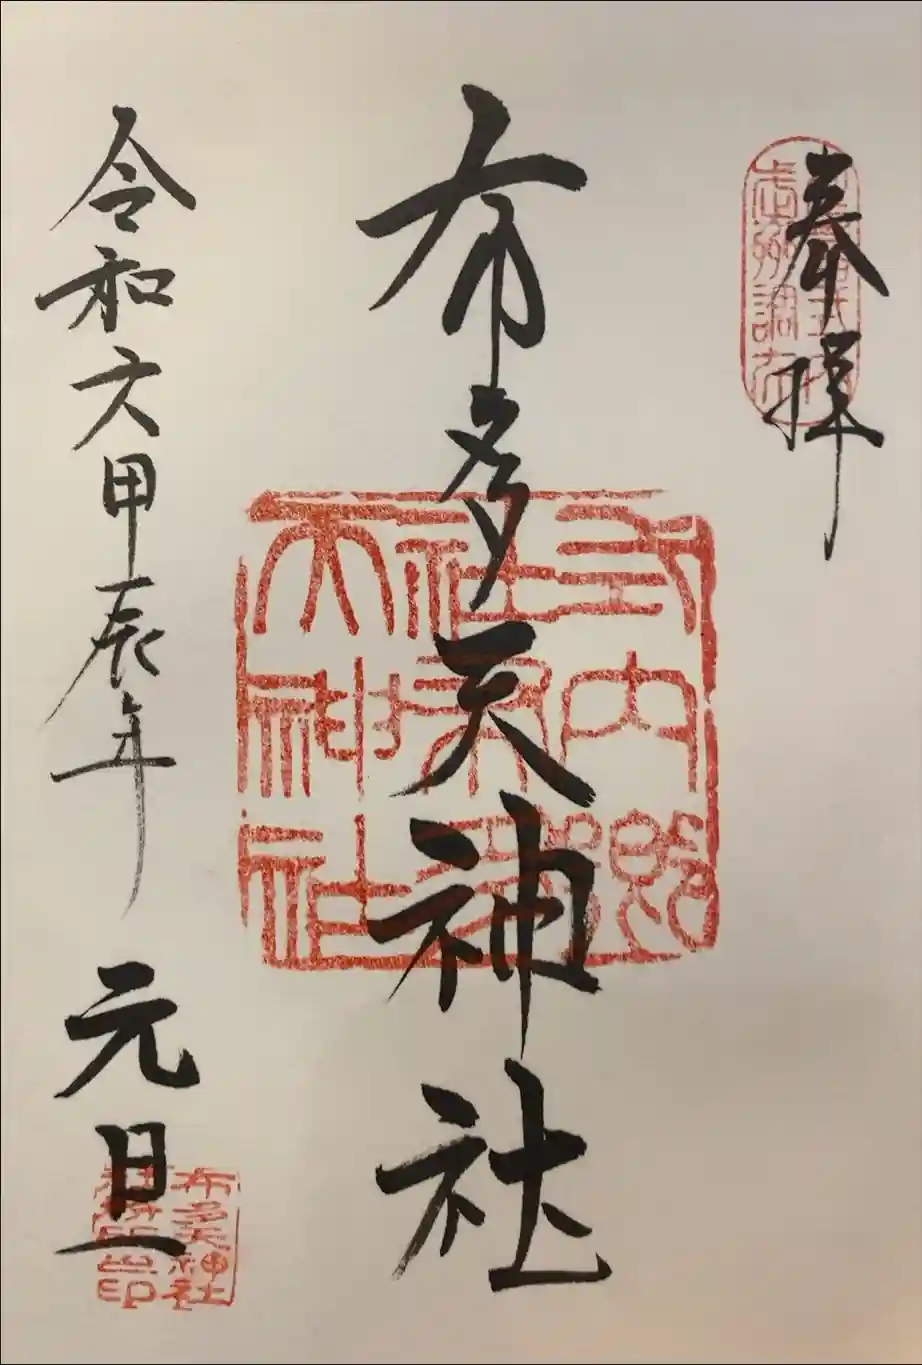 奉拝
延喜式内
武州調布
布多天神社
式内郷
社布多
天神社
令和六甲辰年 元旦
布多天神社
社務所之印